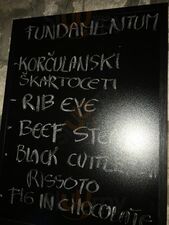 FUNDAMENTUM
- KORČULANSKI
ŠKARTOCETI
- RIB EYE
- BEEF
- BLACK CUTTLEFISH
RISSOTO
FIG IN CHOCOLATE